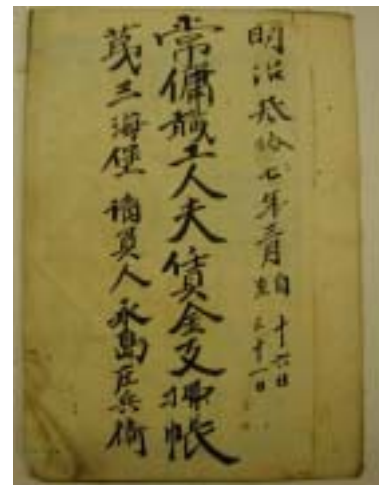 明治弐拾七年三月 自十六日 至三十一日
常傭職工人夫賃金支拂帳
第三海堡 請負人 永島庄兵衛